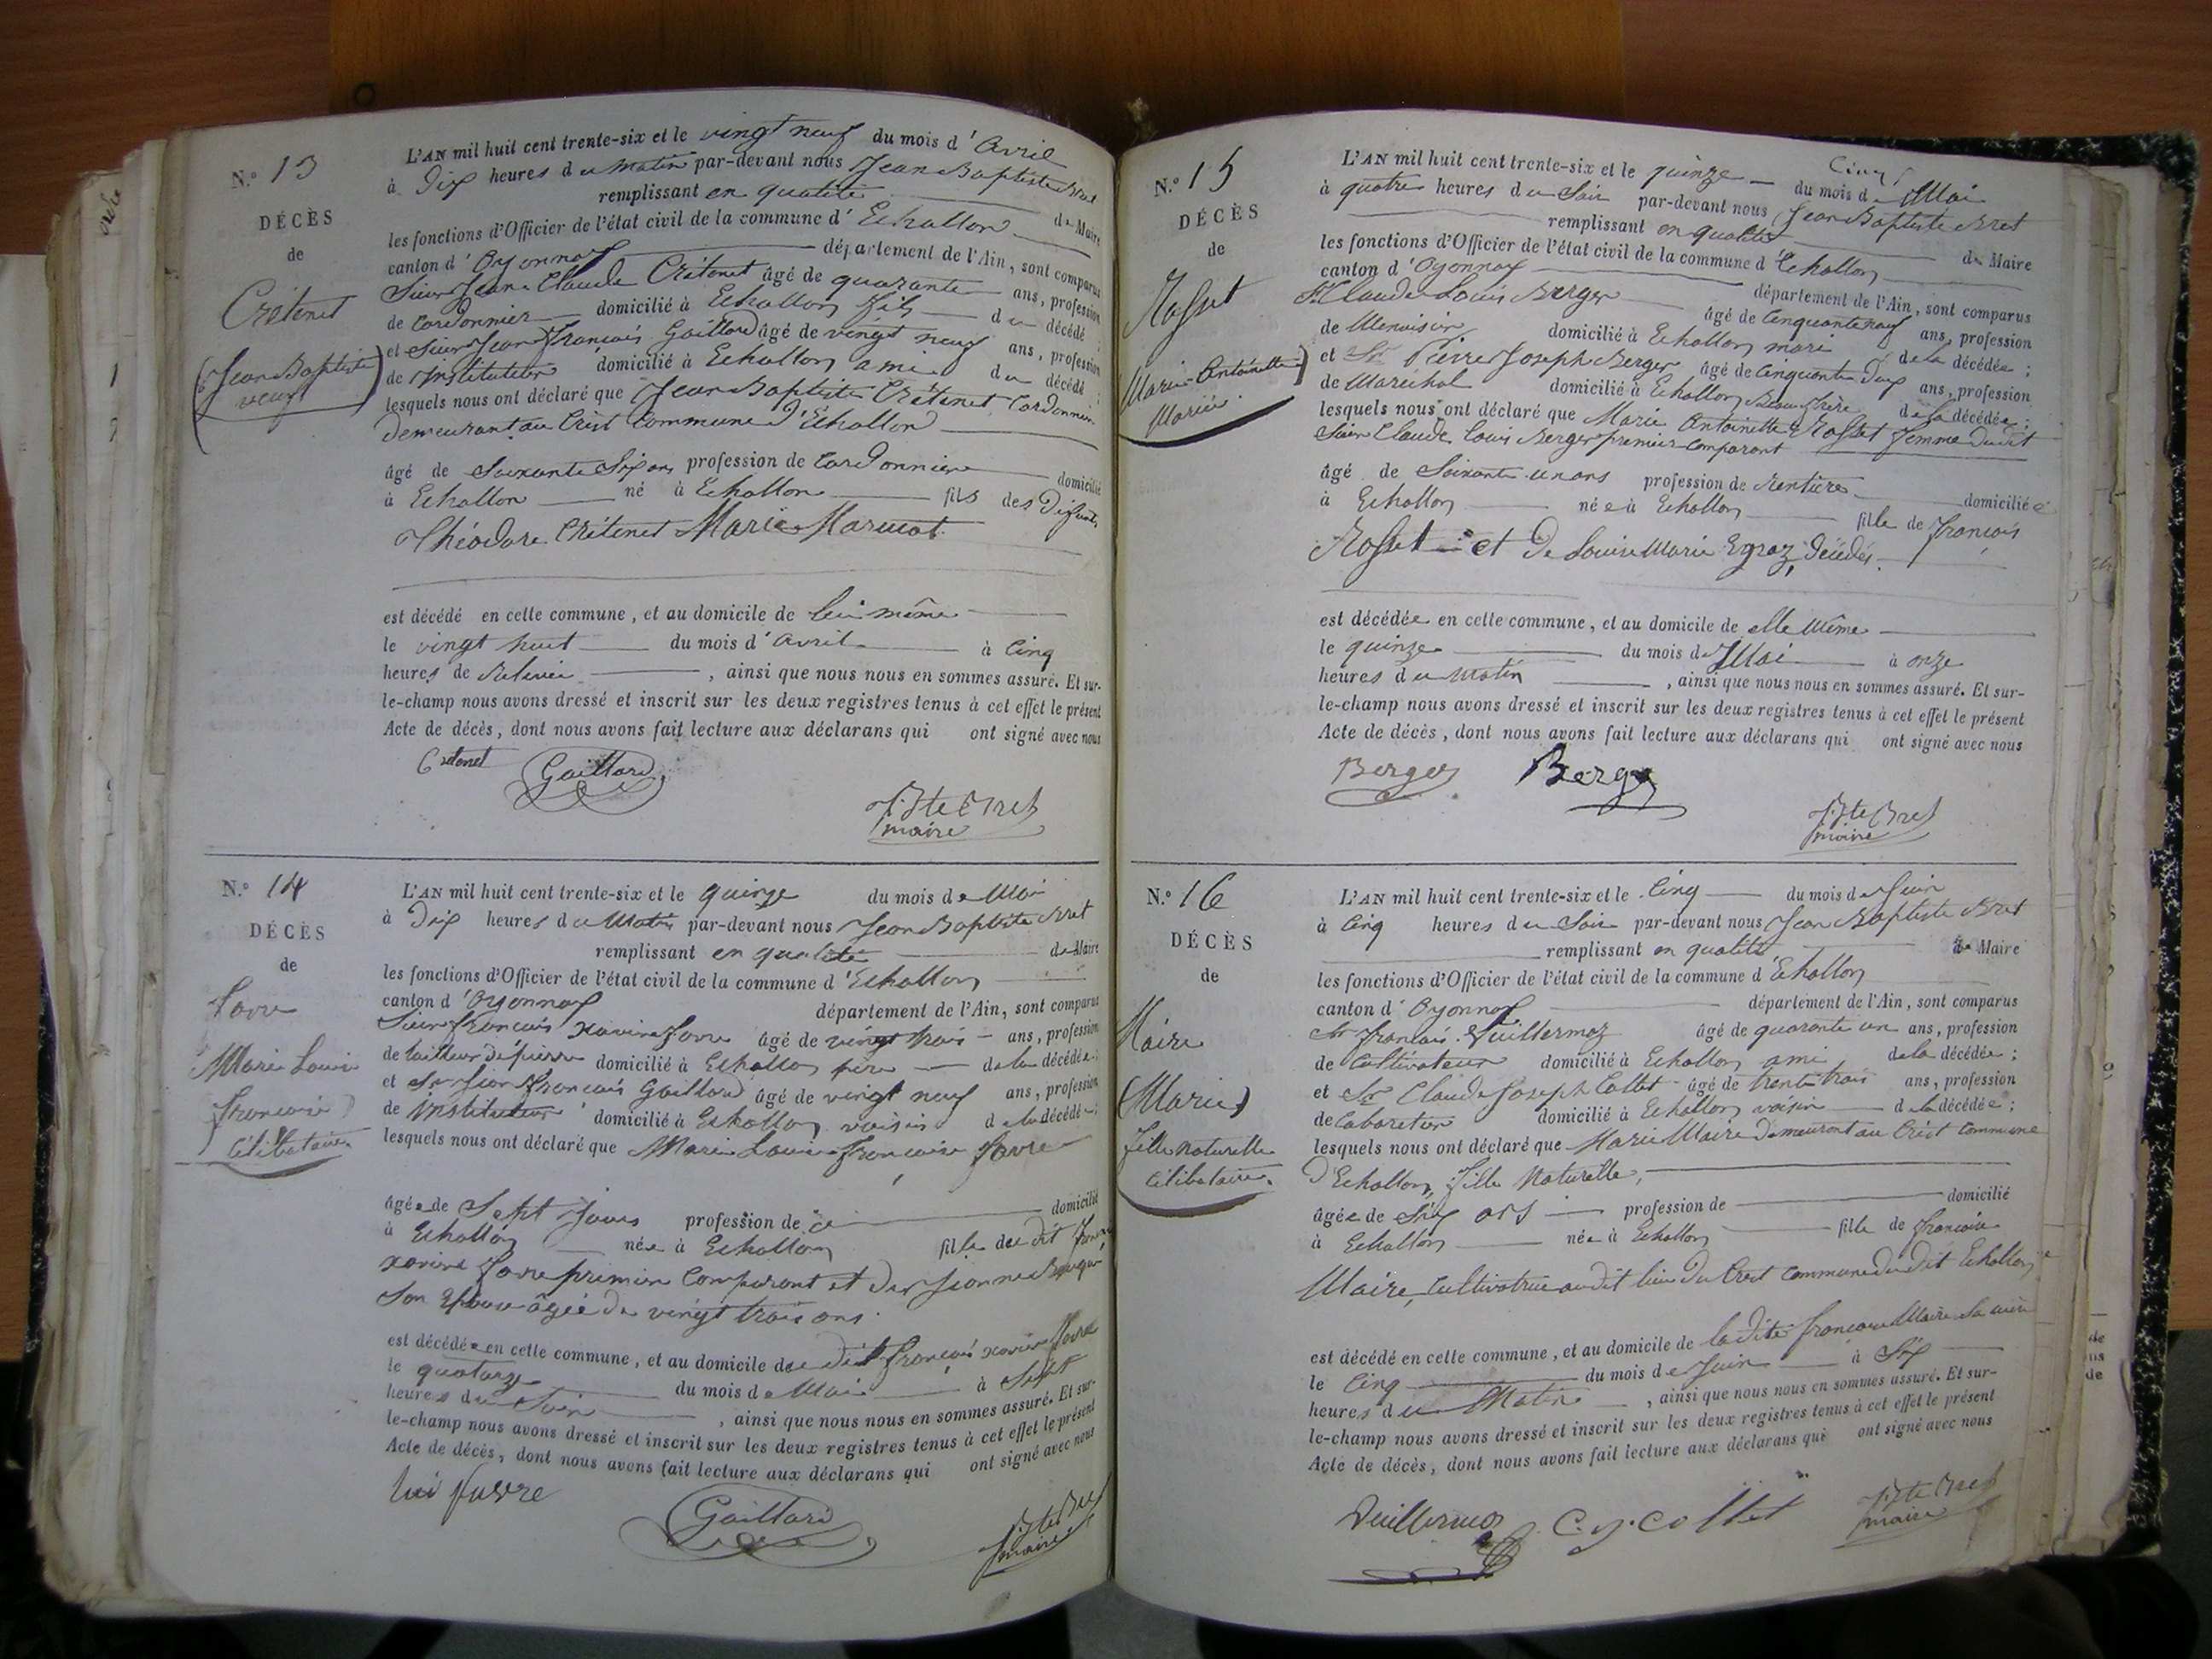 N.° 13
DÉCÈS
de
Crétenet
(Jean Baptiste)
veuf
L'AN mil huit cent trente-six et le vingt neuf du mois d'Avril
à Dix heures du matin par-devant nous Jean Baptiste Bret
remplissant en qualité de Maire
les fonctions d'Officier de l'état civil de la commune d'Echallon
canton d'Oyonnax département de l'Ain, sont comparus
Sieur Jean Claude Crétenet âgé de quarante ans, profession
de Cordonnier domicilié à Echallon fils du décédé;
et Sieur Jean François Gaillard âgé de vingt neuf ans, profession
de Instituteur domicilié à Echallon ami du décédé;
lesquels nous ont déclaré que Jean Baptiste Crétenet, Cordonnier
demeurant au Crêt Commune d'Echallon
âgé de Soixante Six ans profession de Cordonnier domicilié
à Echallon né à Echallon fils des Défunts
Théodore Crétenet Marie Marmot
est décédé en cette commune, et au domicile de lui même
le vingt huit du mois d'Avril à Cinq
heures de Relevée, ainsi que nous nous en sommes assuré. Et sur-
le-champ nous avons dressé et inscrit sur les deux registres tenus à cet effet le présent
Acte de décès, dont nous avons fait lecture aux déclarans qui ont signé avec nous
Cretenet Gaillard
J. Bte Bret
maire
N.° 14
DÉCÈS
de
Favre
Marie Louise
Françoise
Célibataire
L'AN mil huit cent trente-six et le quinze du mois de Mai
à Dix heures du Matin par-devant nous Jean Baptiste Bret
remplissant en qualité de Maire
les fonctions d'Officier de l'état civil de la commune d'Echallon
canton d'Oyonnax département de l'Ain, sont comparus
Sieur François Xavier Favre âgé de vingt trois ans, profession
de tailleur de pierre domicilié à Echallon père de la décédée;
et Sr Jean François Gaillard âgé de vingt neuf ans, profession
de Instituteur domicilié à Echallon voisin de la décédée;
lesquels nous ont déclaré que Marie Louise Françoise Favre
âgée de Sept Jours profession de domicilié
à Echallon née à Echallon fille du dit
Xavier Favre premier Comparant et de Jeanne
Son Epouse âgée de vingt trois ans.
est décédée en cette commune, et au domicile du dit François Xavier Favre
le quatorze du mois de Mai à Sept
heures du Soir, ainsi que nous nous en sommes assuré. Et sur-
le-champ nous avons dressé et inscrit sur les deux registres tenus à cet effet le présent
Acte de décès, dont nous avons fait lecture aux déclarans qui ont signé avec nous
favre Gaillard
J. Bte Bret
maire
N.° 15
DÉCÈS
de
Rosset
Marie Antoinette)
Mariée.
L'AN mil huit cent trente-six et le quinze du mois de Mai
à quatre heures du Soir par-devant nous Jean Baptiste Bret
remplissant en qualité de Maire
les fonctions d'Officier de l'état civil de la commune d'Echallon
canton d'Oyonnax département de l'Ain, sont comparus
Sr Claude Louis Berger âgé de Cinquante neuf ans, profession
de Menuisier domicilié à Echallon mari de la décédée;
et Sr Pierre Joseph Berger âgé de Cinquante Deux ans, profession
de Maréchal domicilié à Echallon Beau frère de la décédée;
lesquels nous ont déclaré que Marie Antoinette Rosset femme du dit
Sieur Claude Louis Berger premier Comparant
âgé de Soixante un ans profession de Rentière domiciliée
à Echallon née à Echallon fille de François
Rosset et De Louise Marie Egraz, Décédés.
est décédée en cette commune, et au domicile de elle même
le quinze du mois de Mai à onze
heures du Matin, ainsi que nous nous en sommes assuré. Et sur-
le-champ nous avons dressé et inscrit sur les deux registres tenus à cet effet le présent
Acte de décès, dont nous avons fait lecture aux déclarans qui ont signé avec nous
Berger Berger
J. Bte Bret
maire
N.° 16
DÉCÈS
de
Maire
(Marie)
fille naturelle
Célibataire.
L'AN mil huit cent trente-six et le Cinq du mois de Juin
à Cinq heures du Soir par-devant nous Jean Baptiste Bret
remplissant en qualité de Maire
les fonctions d'Officier de l'état civil de la commune d'Echallon
canton d'Oyonnax département de l'Ain, sont comparus
Sr François Vuillermoz âgé de quarante un ans, profession
de Cultivateur domicilié à Echallon ami de la décédée;
et Sr Claude Joseph Collet âgé de trente trois ans, profession
de Cabaretier domicilié à Echallon voisin de la décédée;
lesquels nous ont déclaré que Marie Maire Demeurant au Crêt Commune
d'Echallon, fille Naturelle,
âgée de Six ans profession de domicilié
à Echallon née à Echallon fille de Françoise
Maire, Cultivatrice au dit lieu Du Crêt Commune du dit Echallon
est décédé en cette commune, et au domicile de la dite Françoise Maire Sa mère
le Cinq du mois de Juin à Six
heures du Matin, ainsi que nous nous en sommes assuré. Et sur-
le-champ nous avons dressé et inscrit sur les deux registres tenus à cet effet le présent
Acte de décès, dont nous avons fait lecture aux déclarans qui ont signé avec nous
Vuillermoz C. J. Collet
J. Bte Bret
maire